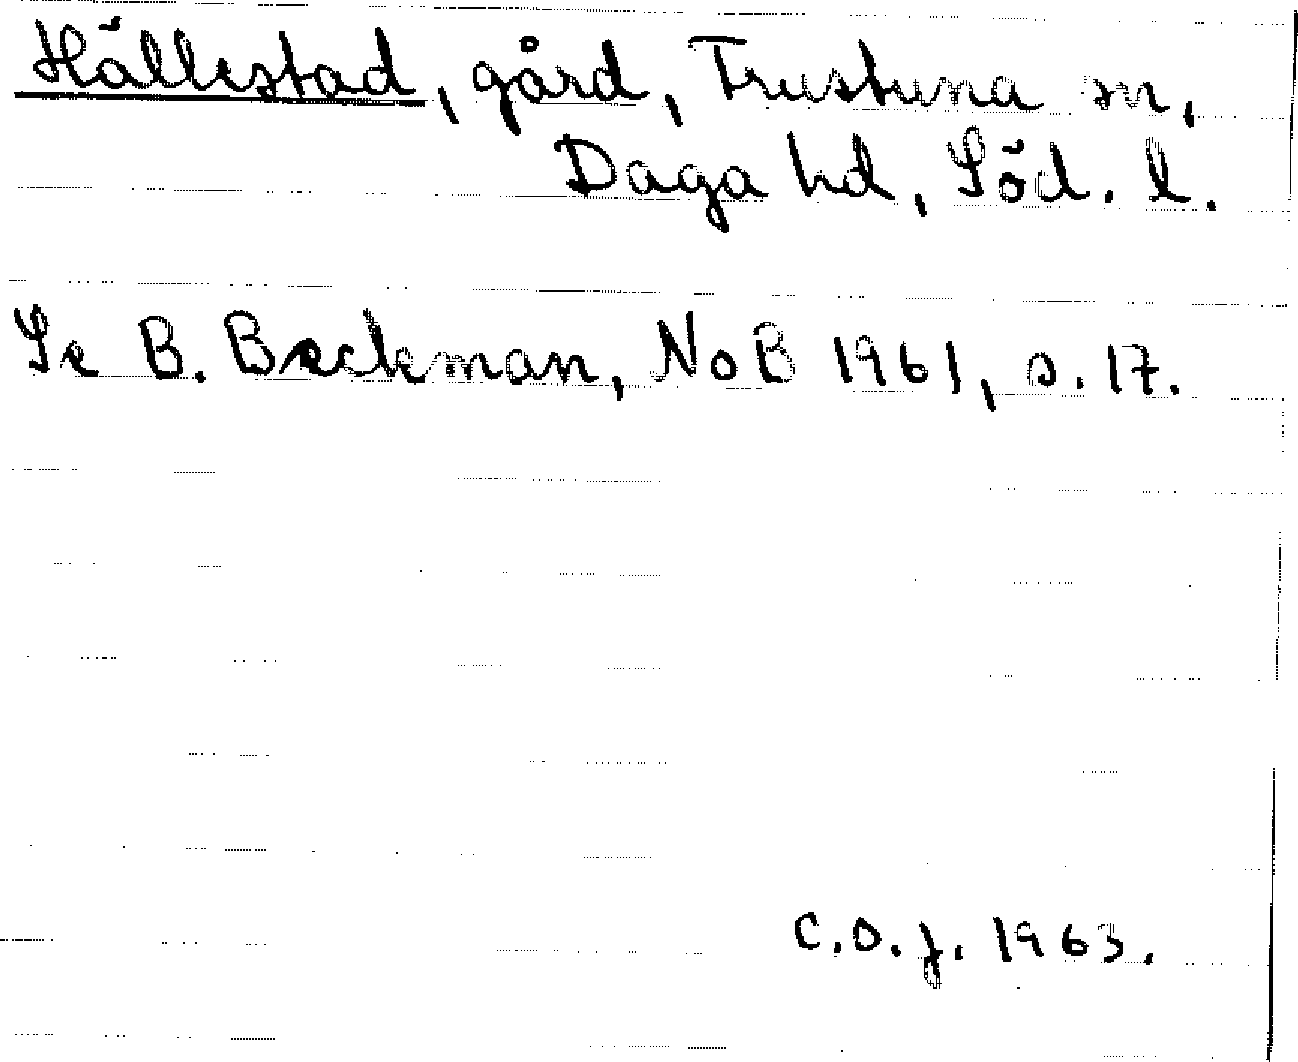 Hällestad, gård, Frustuna sn,
Daga hd, Söd. l.
Se B. Beckman, NoB 1961, s. 17.
C.O.J. 1963.